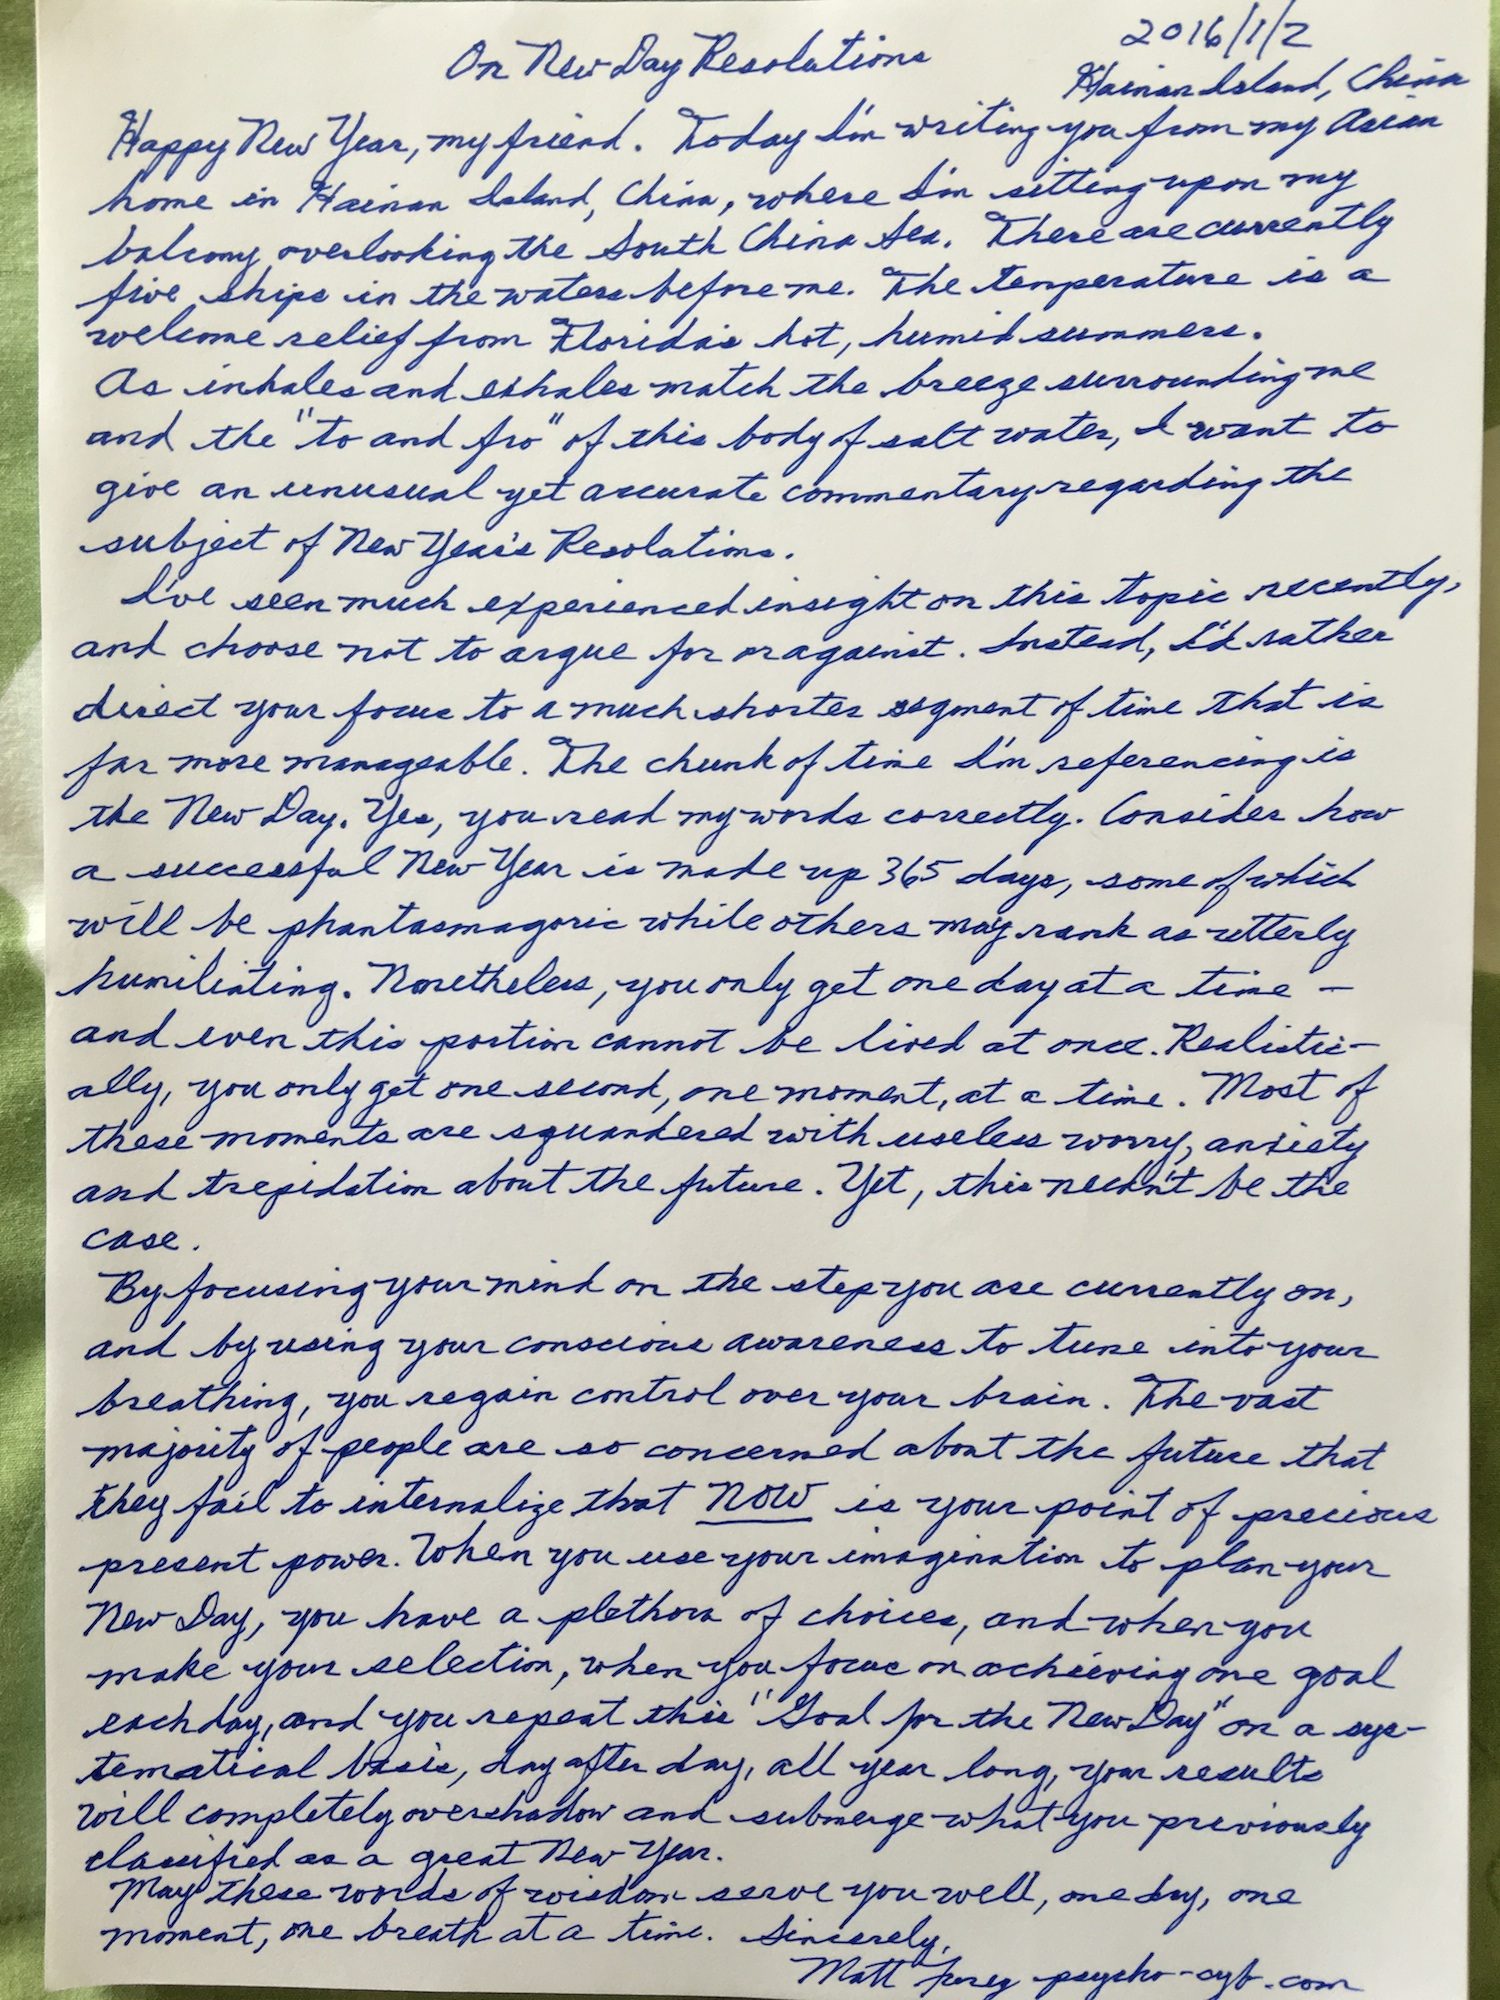 On New Day Resolutions
2016/1/2
Hainan Island, China
Happy New Year, my friend. Today I'm writing you from my Asian
home in Hainan Island, China, where I'm sitting upon my
balcony overlooking the South China Sea. There are currently
five ships in the waters before me. The temperature is a
welcome relief from Florida's hot, humid summers.
As inhales and exhales match the breeze surrounding me
and the "to and fro" of this body of salt water, I want to
give an unusual yet accurate commentary regarding the
subject of New Year's Resolutions.
I've seen much experienced insight on this topic recently,
and choose not to argue for or against. Instead, I'd rather
direct your focus to a much shorter segment of time that is
far more manageable. The chunk of time I'm referencing is
the New Day. Yes, you read my words correctly. Consider how
a successful New Year is made up 365 days, some of which
will be phantasmagoric while others may rank as utterly
humiliating. Nonetheless, you only get one day at a time -
and even this portion cannot be lived at once. Realistic-
ally, you only get one second, one moment, at a time. Most of
these moments are squandered with useless worry, anxiety
and trepidation about the future. Yet, this needn't be the
case.
By focusing your mind on the step you are currently on,
and by using your conscious awareness to tune into your
breathing, you regain control over your brain. The vast
majority of people are so concerned about the future that
they fail to internalize that NOW is your point of precious
present power. When you use your imagination to plan your
New Day, you have a plethora of choices, and when you
make your selection, when you focus on achieving one goal
each day, and you repeat this "Goal for the New Day" on a sys-
tematical basis, day after day, all year long, your results
will completely overshadow and submerge what you previously
classified as a great New Year.
May these words of wisdom serve you well, one day, one
moment, one breath at a time. Sincerely,
Matt Furey psycho-cyb.com